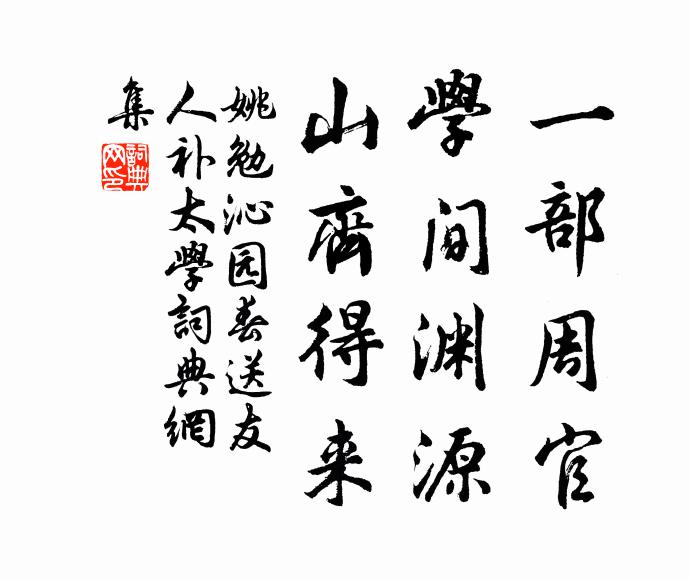 一部周官
學间渊源
山齊得来
姚勉沁园春送友
人补太學詞典網
集
詞典網印